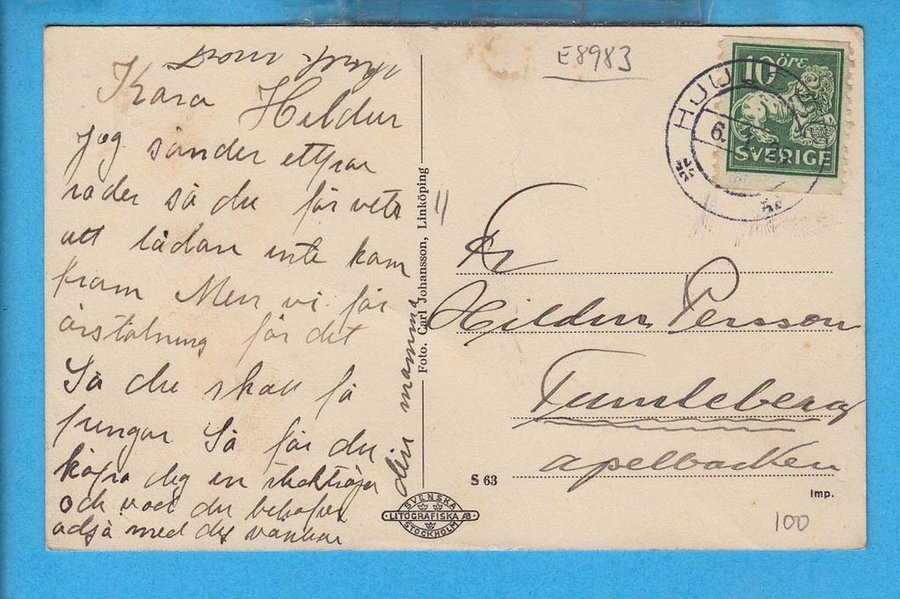 Kära Hildur
Jag sänder ett par
rader så du får veta
att lådan inte kom
fram Men vi får
för det
Så du skall få
pungar Så får du
köpa dig en sticktröja
och vad du behöfver
adjö med dig vännen
din mamma
Foto. Carl Johansson, Linköping
E8983
10 ÖRE
SVERIGE
HJU
6.
Fr
Hildur Persson
Tumleberg
apelbacken
S 63
SVENSKA
LITOGRAFISKA AB
STOCKHOLM
Imp.
100